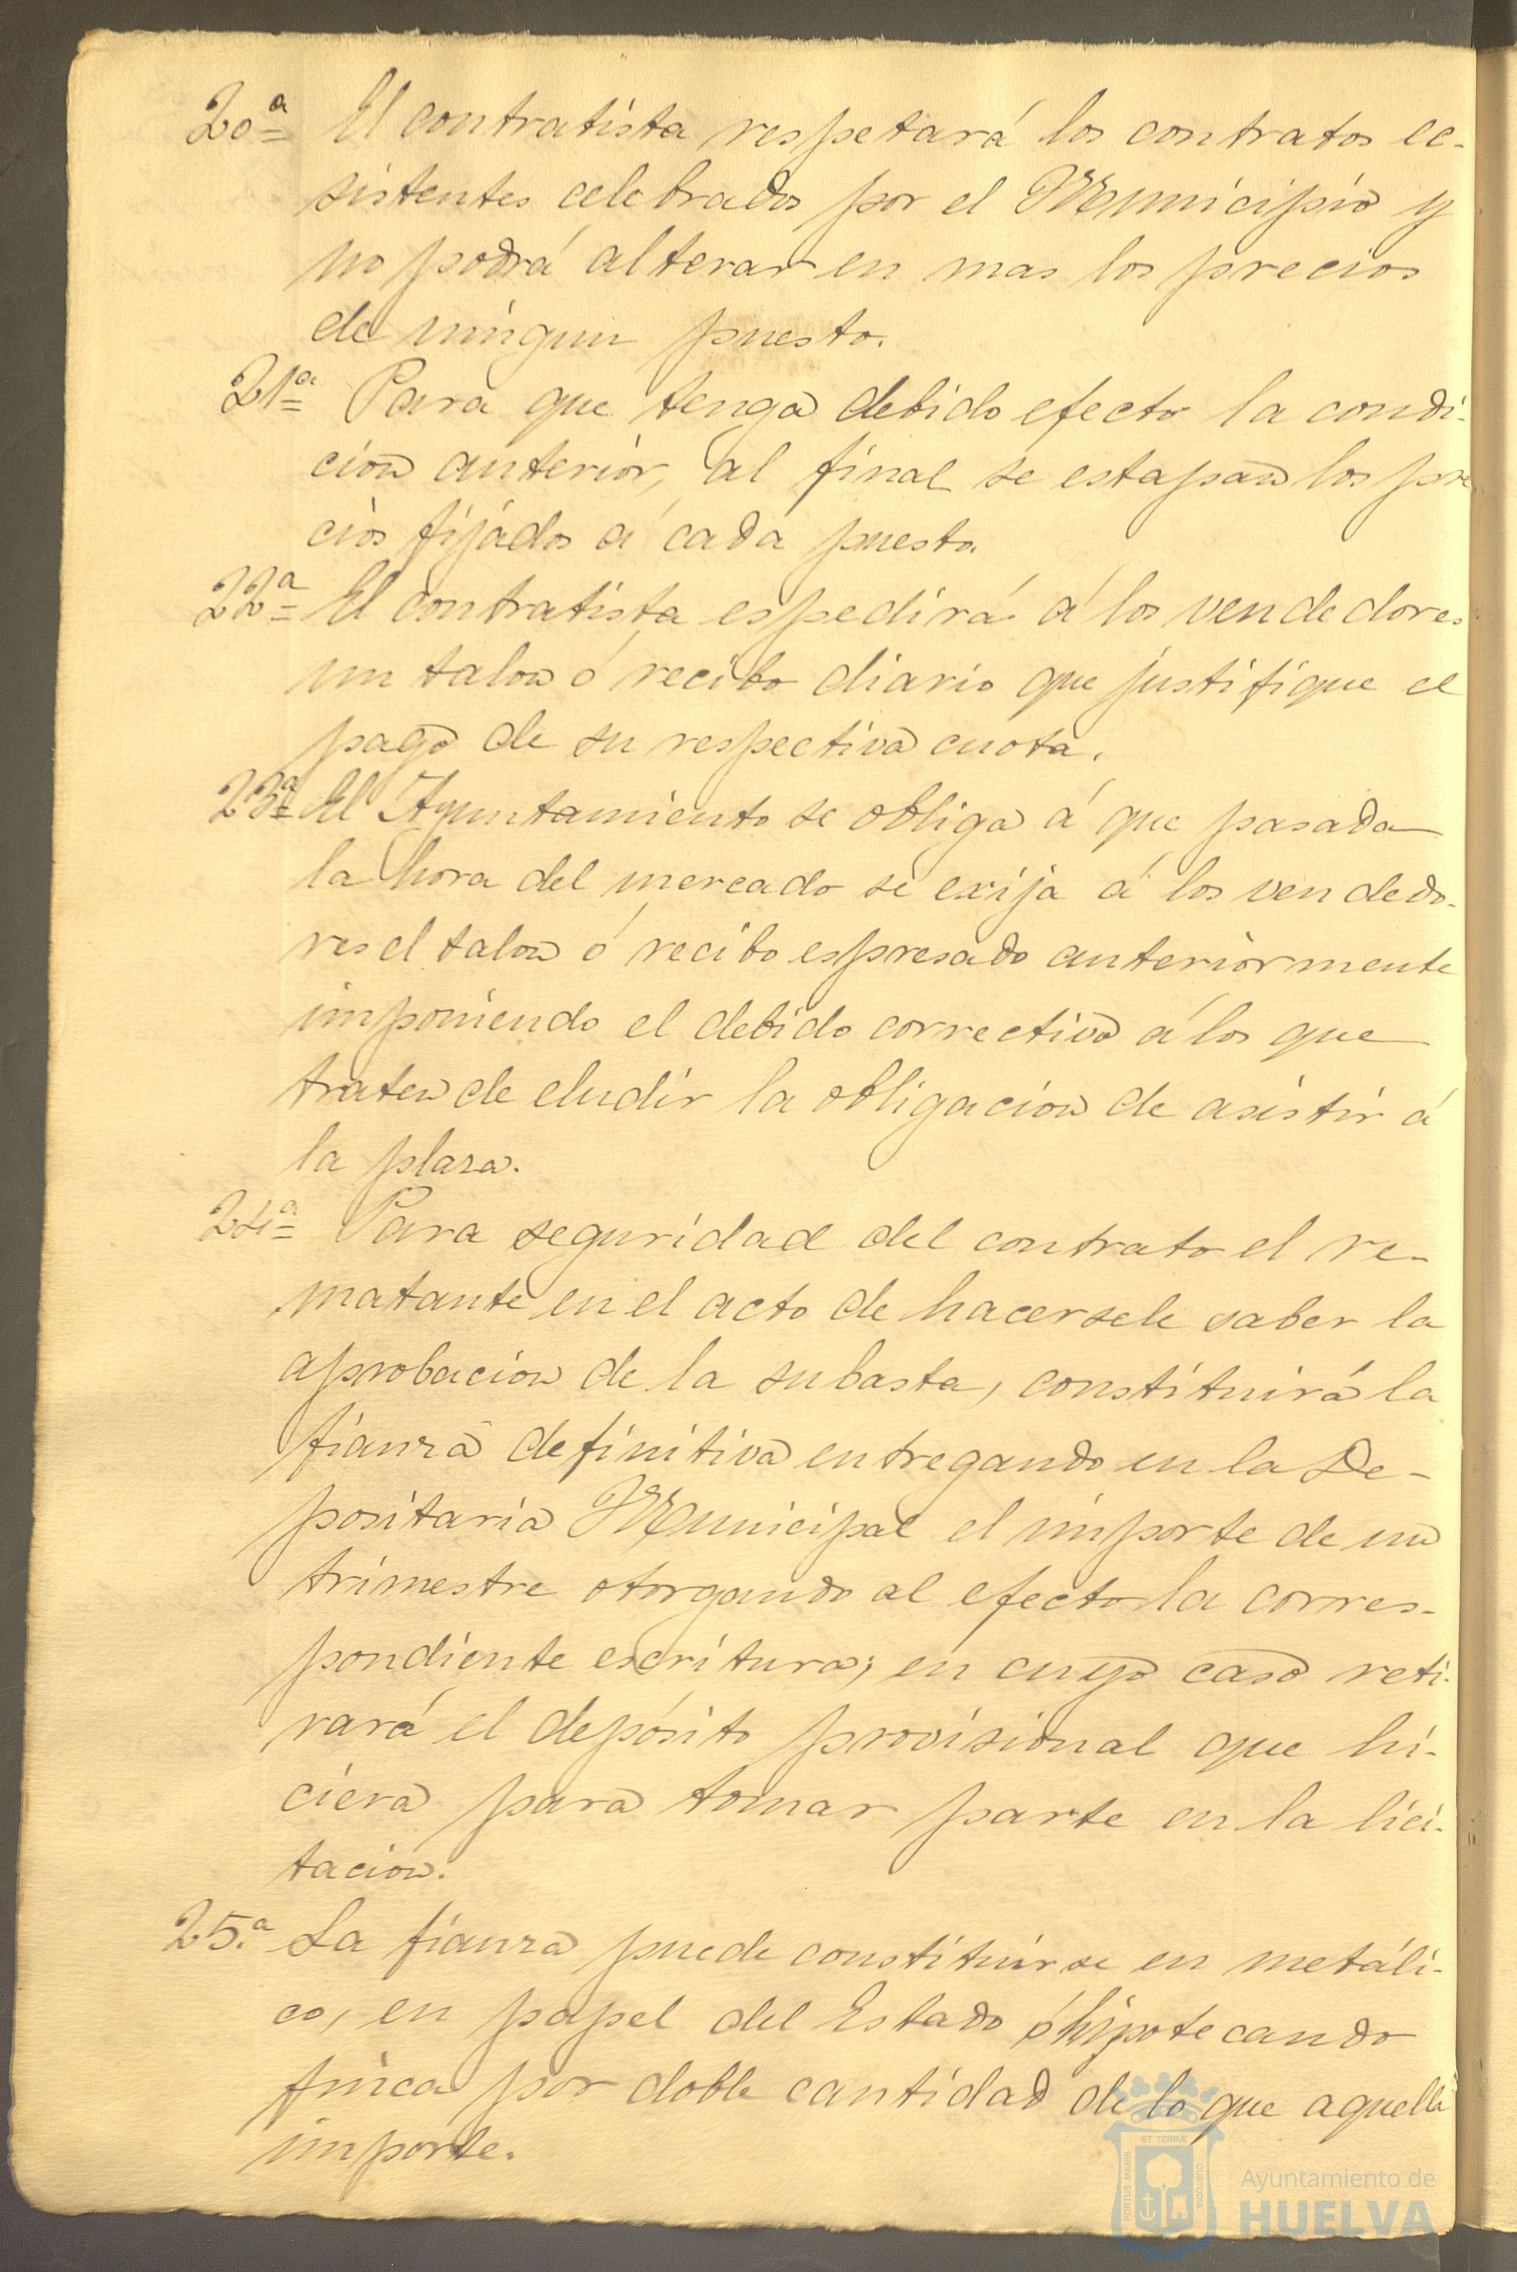 20ª El contratista respetará los contratos ec-
sistentes celebrados por el Municipio y
no podrá alterar en mas los precios
de ningun puesto.
21ª Para que tenga debido efecto la condi-
cion anterior, al final se estapan los pre
cios fijados á cada puesto.
22ª El contratista espedirá á los vendedores
un talon ó recibo diario que justifique el
pago de su respectiva cuota.
23ª El Ayuntamiento se obliga á que pasada
la hora del mercado se exija á los vendedo-
res el talon ó recibo espresado anteriormente
imponiendo el debido correctivo á los que
traten de eludir la obligacion de asistir á
la plaza.
24ª Para seguridad del contrato el re-
matante en el acto de hacersele saber la
aprobacion de la subasta, constituirá la
fianza definitiva entregando en la De-
positaria Municipal el importe de un
trimestre otorgando al efecto la corres-
pondiente escritura; en cuyo caso reti-
rará el depósito provisional que hi-
ciera para tomar parte en la lici-
tacion.
25.ª La fianza puede constituirse en metáli-
co, en papel del Estado ó hipotecando
finca por doble cantidad de lo que aquella
importe.
PORTUS MARIS ET TERRA CUSTODIA
Ayuntamiento de
HUELVA